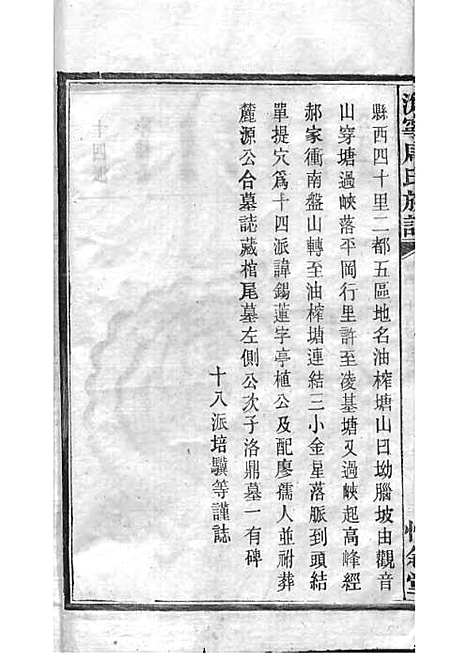 縣西四十里二都五區地名油榨塘山曰坳腦坡由觀音
山穿塘過峽落平岡行里許至凌基塘又過峽起高峰經
郝家衝南盤山轉至油榨塘連結三小金星落脈到頭結
單提穴爲十四派諱錫蓮字亭植公及配廖孺人並祔葬
麓源公合墓誌藏棺尾墓左側公次子洛鼎墓一有碑
十八派培驥等謹誌
寧周氏族譜